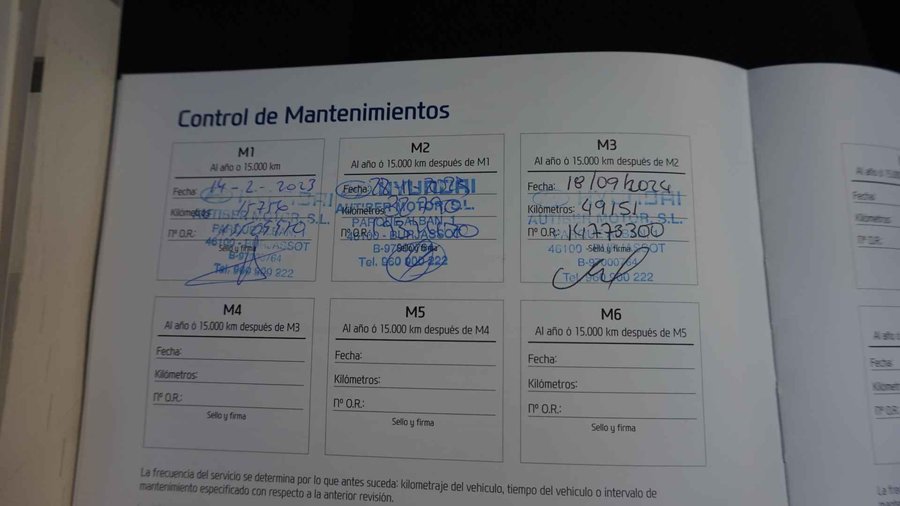 Control de Mantenimientos
M1
Al año o 15.000 km
Fecha: 14-2-2023
Kilómetros: 15756
Nº O.R.:
46100 - BURJASSOT
Sello y firma
B-97000764
Tel. 960 900 222
M2
Al año ó 15.000 km después de M1
Fecha:
HYUNDAI
Kilómetros:
AUTIBER MOTOR, S.L.
Nº O.R.:
46100 - BURJASSOT
Sello y firma
B-97000764
Tel. 960 900 222
M3
Al año ó 15.000 km después de M2
Fecha: 18/09/2024
Kilómetros: 49151
MOTOR, S.L.
Nº O.R.: 14773300
46100 - BURJASSOT
Sello y firma
B-97000764
Tel. 960 900 222
M4
Al año ó 15.000 km después de M3
Fecha:
Kilómetros:
Nº O.R.:
Sello y firma
M5
Al año ó 15.000 km después de M4
Fecha:
Kilómetros:
Nº O.R.:
Sello y firma
M6
Al año ó 15.000 km después de M5
Fecha:
Kilómetros:
Nº O.R.:
Sello y firma
La frecuencia del servicio se determina por lo que antes suceda: kilometraje del vehículo, tiempo del vehículo o intervalo de
mantenimiento especificado con respecto a la anterior revisión.